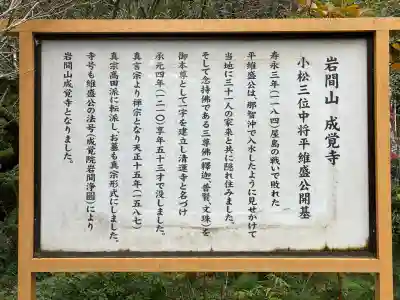 岩間山 成覚寺
小松三位中将平維盛公開基
寿永三年(一一八四)屋島の戦いで敗れた
平維盛公は、那智沖で入水したように見せかけて
当地に三十一人の家来と共に隠れ住みました。
そして念持佛である三尊佛(釋迦、普賢、文珠)を
御本尊として一字を建立し清運寺と名づけ
承元四年(一二一〇)享年五十三才で没しました。
真言宗より禅宗となり天正十五年(一五八七)
真宗高田派に転派し、お墓も真宗形式にしました。
寺号も維盛公の法号(成覚院岩間浄圓)により
岩間山成覚寺となりました。